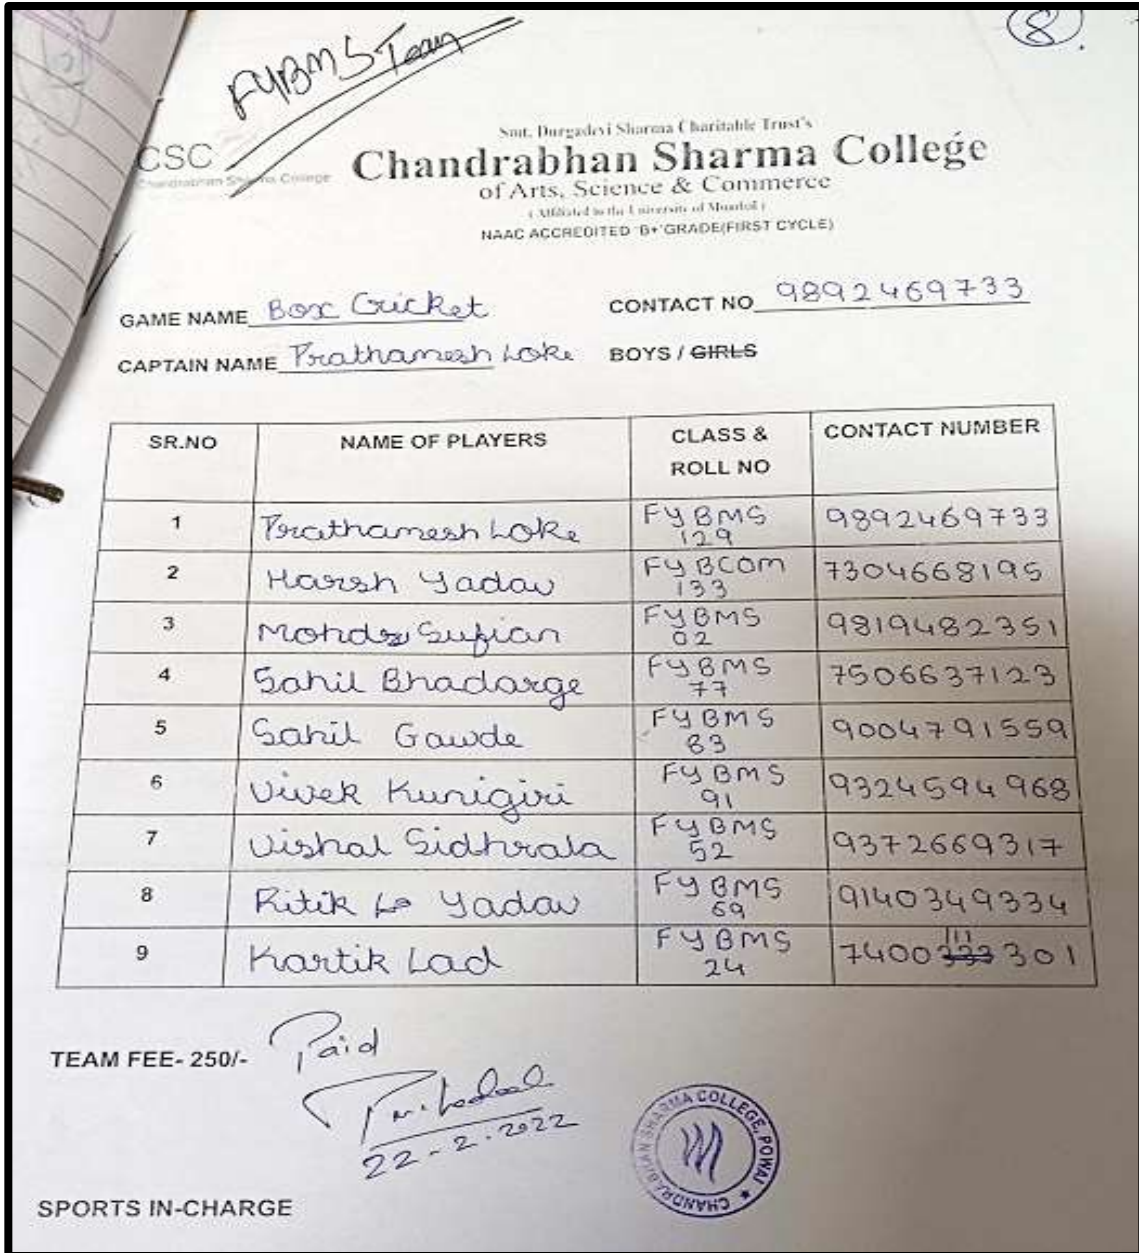 8.
FYBMS Team
Smt. Durgadevi Sharma Charitable Trust's
CSC
Chandrabhan Sharma College
Chandrabhan Sharma College
of Arts, Science & Commerce
( Affiliated to the University of Mumbai )
NAAC ACCREDITED 'B+'GRADE(FIRST CYCLE)
GAME NAME Box Cricket CONTACT NO 9892469733
CAPTAIN NAME Prathamesh Loke BOYS / GIRLS
SR.NO NAME OF PLAYERS CLASS & ROLL NO CONTACT NUMBER
1 Prathamesh Loke FYBMS 129 9892469733
2 Harsh Yadav FYBCOM 133 7304668195
3 Mohd Sufian FYBMS 02 9819482351
4 Sahil Bhadarge FYBMS 77 7506637123
5 Sahil Gawde FYBMS 83 9004791559
6 Vivek Kunigiri FYBMS 91 9324594968
7 Vishal Sidhrala FYBMS 52 9372669317
8 Ritik Yadav FYBMS 69 9140349334
9 Kartik Lad FYBMS 24 7400111301
TEAM FEE- 250/- Paid
22-2-2022
CHANDRABHAN SHARMA COLLEGE, POWAI
SPORTS IN-CHARGE